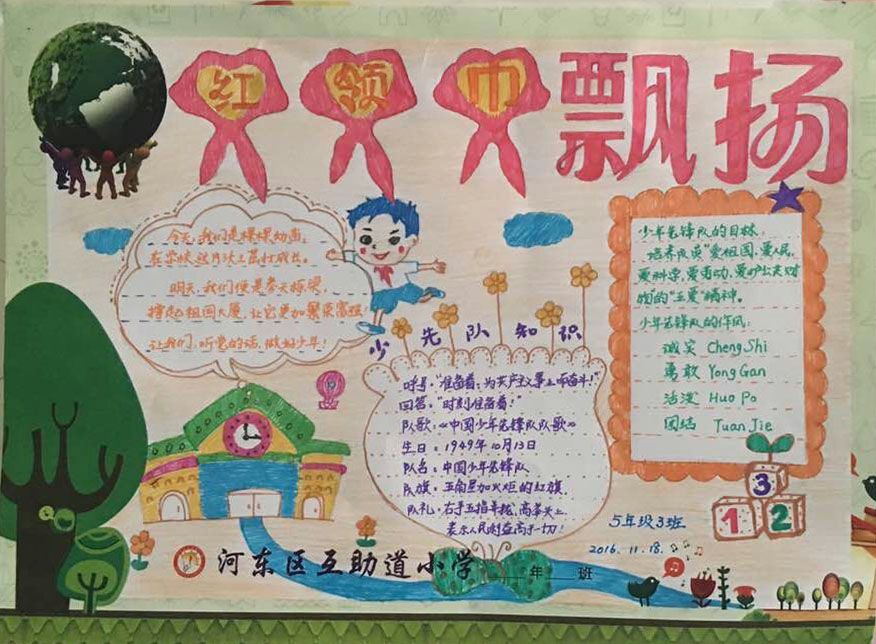 红领巾飘扬
今天,我们是棵棵幼苗,
在学校这片沃土茁壮成长。
明天,我们便是参天栋梁,
撑起祖国大厦,让它更加繁荣富强!
让我们,听党的话,做好少年!
少先队知识
呼号:"准备着,为共产主义事业而奋斗!"
回答:"时刻准备着!"
队歌:《中国少年先锋队队歌》
生日:1949年10月13日
队名:中国少年先锋队
队旗:五角星加火炬的红旗
队礼:右手五指并拢,高举头上
表示人民利益高于一切!
少年先锋队的目标:
培养队员"爱祖国,爱人民,
爱科学,爱劳动,爱护公共财
物的"五爱"精神。
少年先锋队的作风:
诚实 Cheng Shi
勇敢 Yong Gan
活泼 Huo Po
团结 Tuan Jie
3
1 2
5年级3班
2016.11.18.
河东区互助道小学 年 班